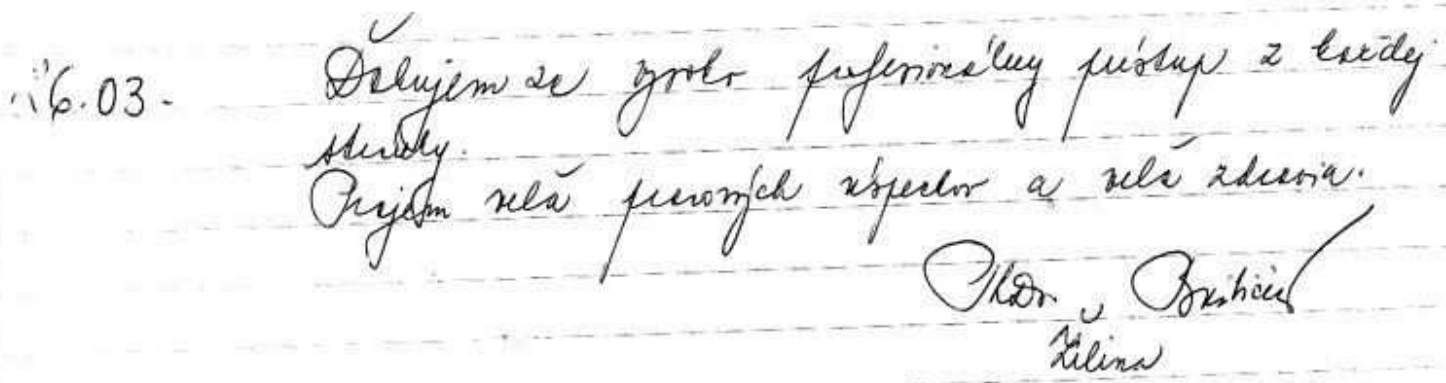 16.03. Ďakujem za vysoko profesionálny prístup z každej
stránky.
Prajem veľa pracovných úspechov a veľa zdravia.
PhDr.
Žilina